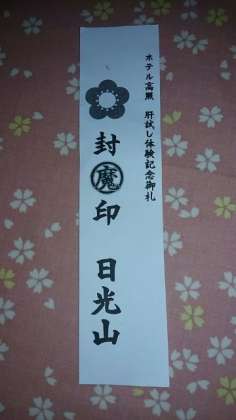 ホテル高照 肝試し体験記念御札
封魔印 日光山